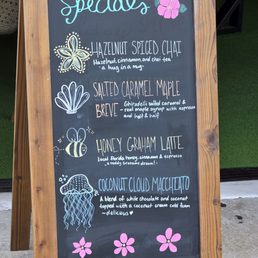 Specials
HAZELNUT SPICED CHAI
Hazelnut, cinnamon, and chai tea
- a hug in a mug -
SALTED CARAMEL MAPLE
BREVE
Ghirardelli salted caramel &
real maple syrup with espresso
and half & half
HONEY GRAHAM LATTE
local florida honey, cinnamon & espresso
COCONUT CLOUD MACCHIATO
A blend of white chocolate and coconut
topped with a coconut cream cold foam
- delicioso